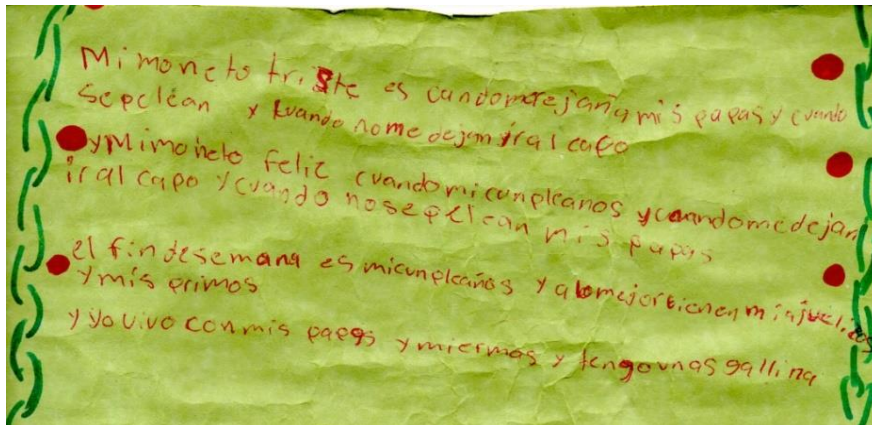 Mi moneto triste es cuandomerejañamis papas y cuando
sepelean y kuando nome dejan iral capo
y Mimoneto feliz cuandomicunpleanos ycuandomedejan
iral capo y cuando nosepelean mis papas
el findesemana es micunpleaños y alomejorbienenmiajuelitos
y mis primos
y yo vivo conmis papas ymiermas y tengounasgallina